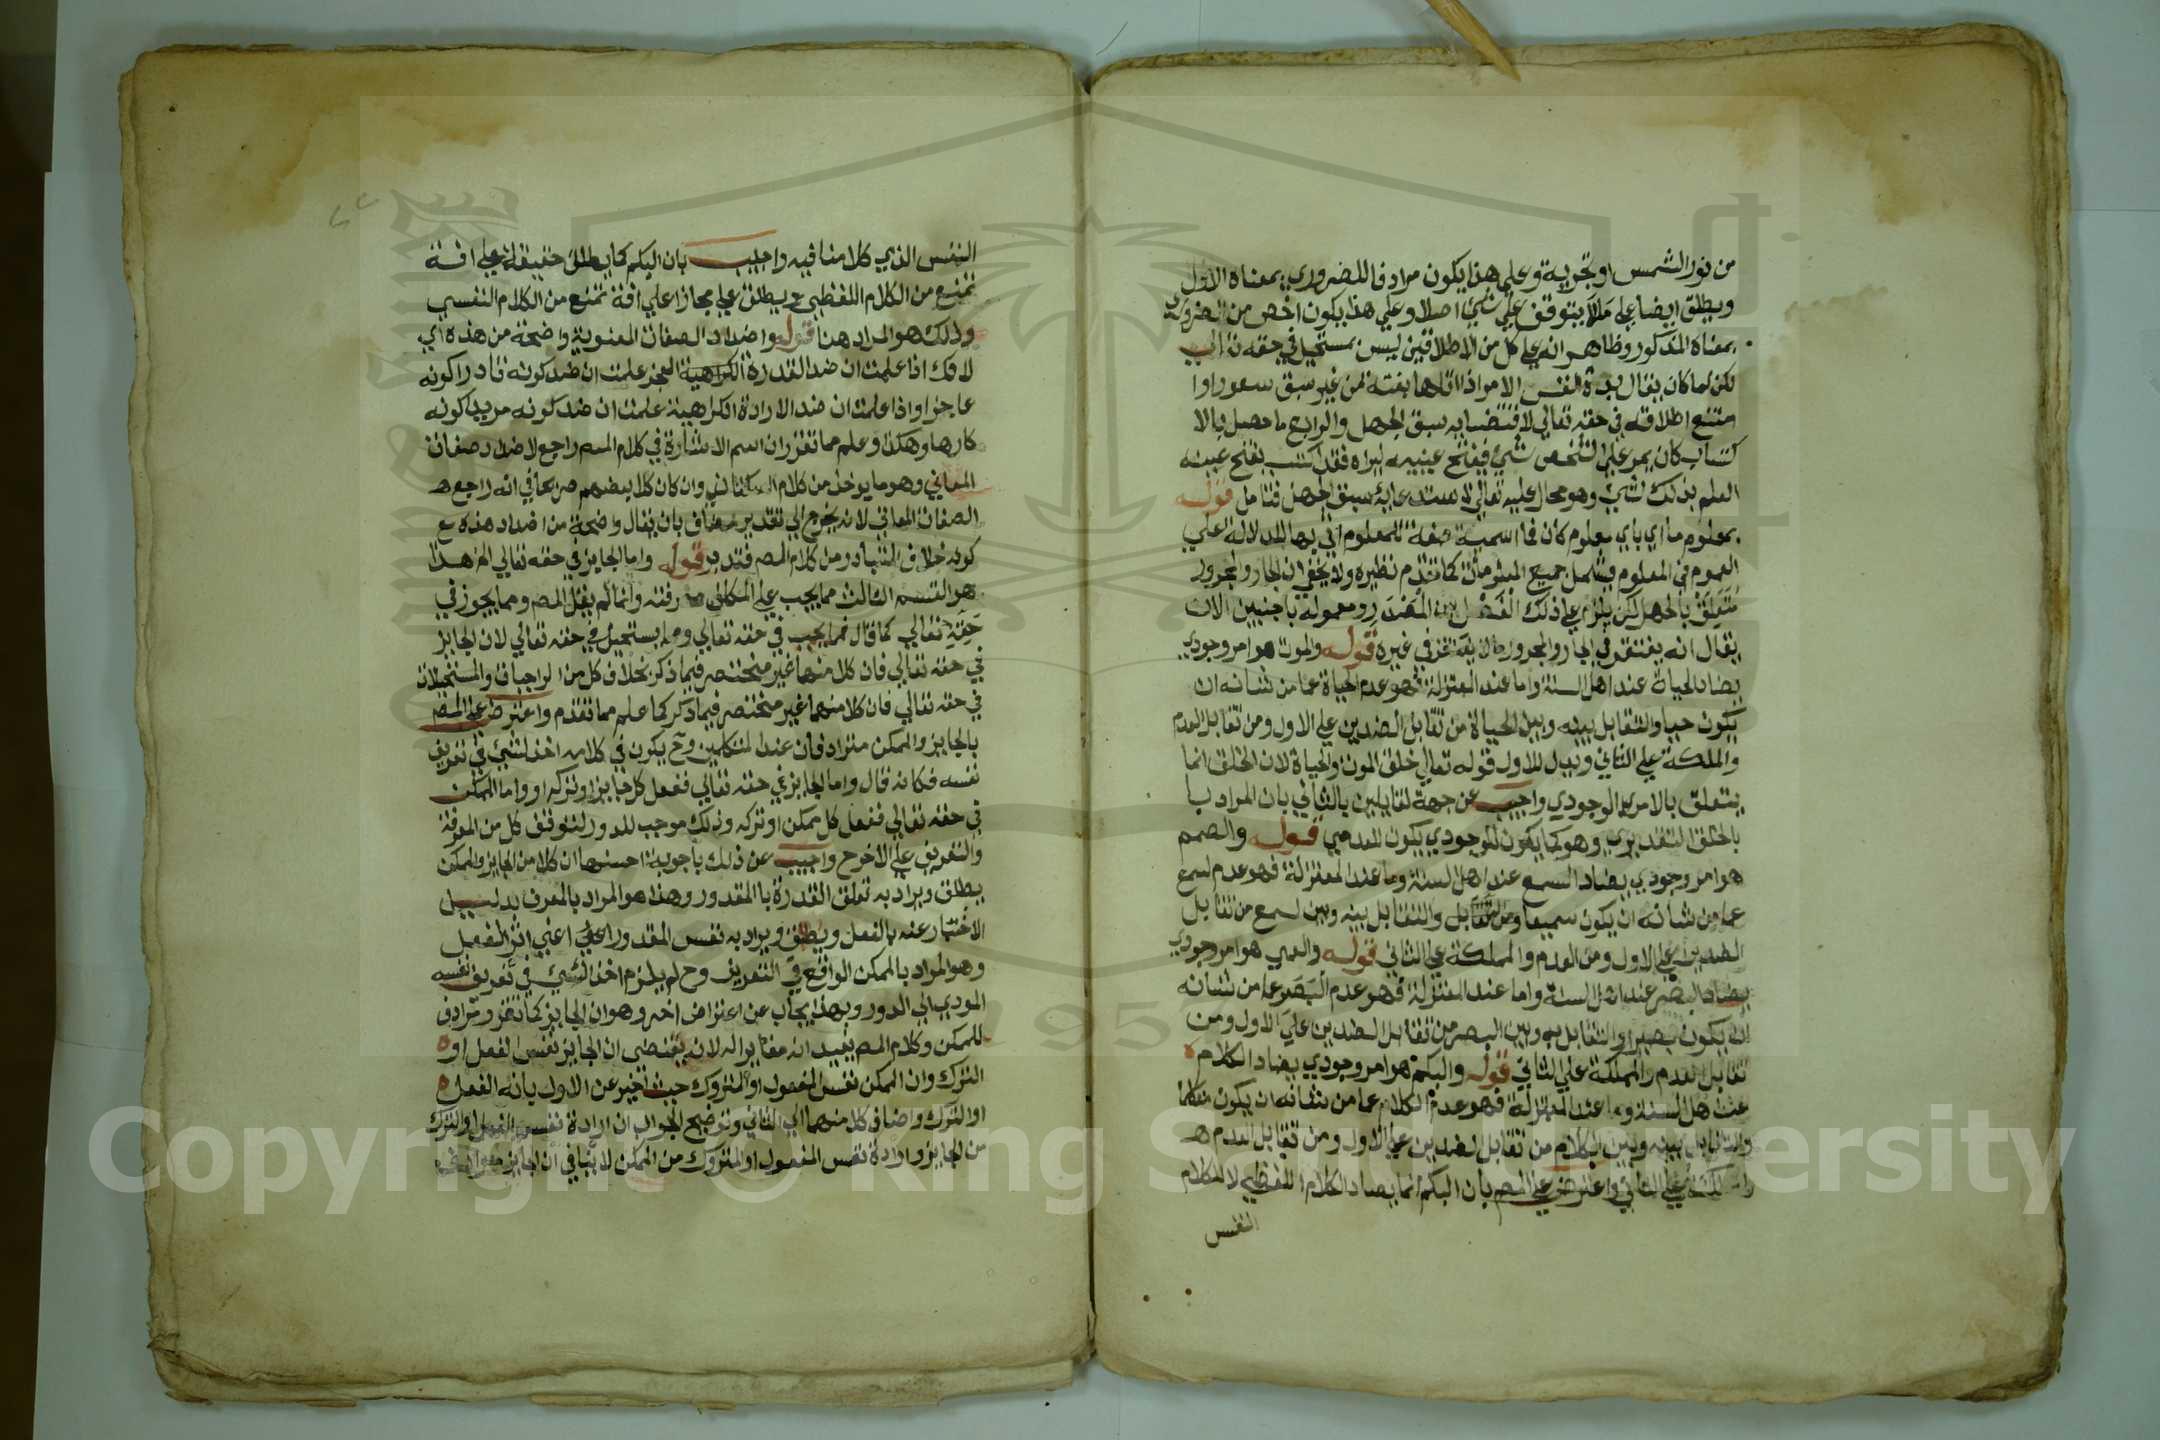 من نور الشمس او تجربة وعلي هذا يكون مرادفا للضروري بمعناه الاول
ويطلق ايضا علي مالا يتوقف علي شئ اصلا وعلي هذا يكون اخص من الضروري
بمعناه المذكور وظاهر انه علي كل من الاطلاقين ليس بمستحيل في حقه تعالي
لكن لما كان يقال بده النفس الامر اذا اتاها بغتة من غير سبق شعور
امتنع اطلاقه في حقه تعالي لاقتضائه سبق الجهل والرابع ما حصل بالا
كتساب كان يمر علي الشخص شئ فيفتح عينيه ليراه فقد اكتسب بفتح عينيه
العلم بذلك الشئ وهو محال عليه تعالي لاستدعائه سبق الجهل فتامل قوله
بمعلوم ما اي باي معلوم كان فما اسمية صفة للمعلوم اتي بها للدلالة علي
العموم في المعلوم فيشمل جميع المعلومات كما تقدم نظيره ولا يخفي ان الجار والمجرور
متعلق بالجهل لكن يلزم علي ذلك الفصل بين المصدر ومعموله باجنبي الا ان
يقال انه يغتفر في الجار والمجرور مالا يغتفر في غيره قوله والموت هو امر وجودي
يضاد الحياة عند اهل السنة واما عند المعتزلة فهو عدم الحياة عما من شانه ان
يكون حيا والتقابل بينه وبين الحياة من تقابل الضدين علي الاول ومن تقابل العدم
والملكة علي الثاني ويدل للاول قوله تعالي خلق الموت والحياة لان الخلق انما
يتعلق بالامر الوجودي واجيب عن جهة القايلين بالثاني بان المراد
بالخلق التقدير وهو كما يكون للوجودي يكون للعدمي قوله والصمم
هو امر وجودي يضاد السمع عند اهل السنة واما عند المعتزلة فهو عدم السمع
عما من شانه ان يكون سميعا والتقابل بينه وبين السمع من تقابل
الضدين علي الاول ومن العدم والملكة علي الثاني قوله والعمي هو امر وجودي
يضاد البصر عند اهل السنة واما عند المعتزلة فهو عدم البصر عما من شانه
ان يكون بصيرا والتقابل بينه وبين البصر من تقابل الضدين علي الاول ومن
تقابل العدم والملكة علي الثاني قوله والبكم هو امر وجودي يضاد الكلام
عند اهل السنة واما عند المعتزلة فهو عدم الكلام عما من شانه ان يكون متكلما
والتقابل بينه وبين الكلام من تقابل الضدين علي الاول ومن تقابل العدم
والملكة علي الثاني واعترض علي المصـ بان البكم انما يضاد الكلام اللفظي لا الكلام
النفس
النفس الذي كلامنا فيه واجيب بان البكم كما يطلق حقيقة علي افة
تمنع من الكلام اللفظي يطلق مجازا علي افة تمنع من الكلام النفسي
وذلك هو المراد هنا قوله واضداد الصفات المعنوية واضحة من هذه اي
لانك اذا علمت ان ضد القدرة العجز علمت ان ضد كونه قادرا كونه
عاجزا واذا علمت ان ضد الارادة الكراهية علمت ان ضد كونه مريدا كونه
كارها وهكذا وعلم مما تقرر ان اسم الاشارة في كلام المصـ راجع لاضداد صفات
المعاني وهو ما يوخذ من كلام السكتاني وان كان كلا بعضهم صريحا في انه راجع
الصفات المعاني لانه يحوج الي تقدير مضاف بان يقال واضحة من اضداد هذه مع
كونه خلاف المتبادر من كلام المصـ فتدبر قوله واما الجايز في حقه تعالي الخ هذا
هو القسم الثالث مما يجب علي المكلف معرفته وانما لم يقل المصـ ومما يجوز في
حقه تعالي كما قال فمما يجب في حقه تعالي ومما يستحيل في حقه تعالي لان الجايز
في حقه تعالي فان كلا منهما غير منحصر فيما ذكر بخلاف كل من الواجبات والمستحيلات
في حقه تعالي فان كلا منهما غير منحصر فيما ذكر كما علم مما تقدم واعترض علي المصـ
بالجايز والممكن مترادفان عند المتكلمين وح يكون في كلامه اخذ الشئ في تعريف
نفسه فكانه قال واما الجايز في حقه تعالي ففعل كل جايز او تركه او واما الممكن
في حقه تعالي ففعل كل ممكن او تركه وذلك موجب للدور لتوقف كل من المعرفة
والتعريف علي الاخر واجيب عن ذلك باجوبة احسنها ان كلا من الجايز والممكن
يطلق ويراد به تعلق القدرة بالمقدور وهذا هو المراد بالمعرف بدليل
الاخبار عنه بالفعل ويطلق ويراد به نفس المقدور اعني اثر الفعل
وهو المراد بالممكن الواقع في التعريف وح لم يلزم اخذ الشئ في تعريف نفسه
المودي الي الدور وبهذا يجاب عن اعتراض اخر وهو ان الجايز كما تقرر مرادف
للممكن وكلام المصـ يفيد انه مغاير له لانه يقتضي ان الجايز نفس الفعل او
الترك وان الممكن نفس المفعول او المتروك حيث اخبر عن الاول بانه الفعل
او الترك واضاف كلا منهما الي الثاني وتوضيح الجواب ان ارادة نفس الفعل او الترك
من الجايز وارادة نفس المفعول او المتروك من الممكن لا ينافي ان الجايز